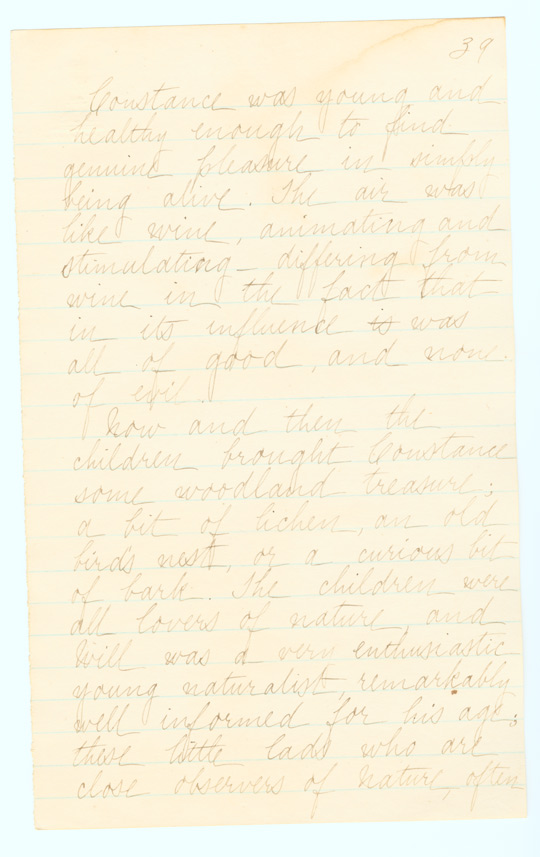 39
Constance was young and
healthy enough to find
genuine pleasure in simply
being alive. The air was
like wine, animating and
stimulating – differing from
wine in the fact that
in its influence is was
all of good, and none
of evil.
Now and then the
children brought Constance
some woodland treasure;
a bit of lichen, an old
birds nest, or a curious bit
of bark. The children were
all lovers of nature, and
Will was a very enthusiastic
young naturalist, remarkably
well informed for his age;
these little lads who are
close observers of Nature, often